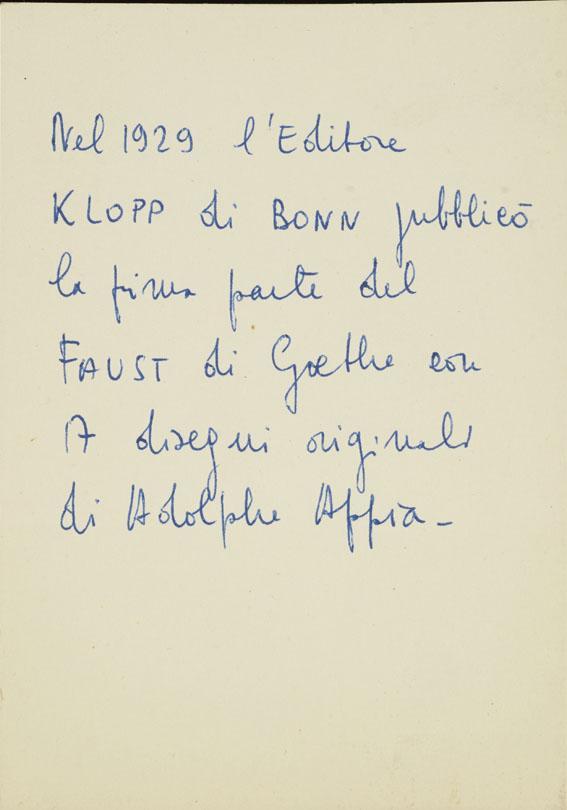 Nel 1929 l'Editore
KLOPP di BONN pubblicò
la prima parte del
FAUST di Goethe con
17 disegni originali
di Adolphe Appia -